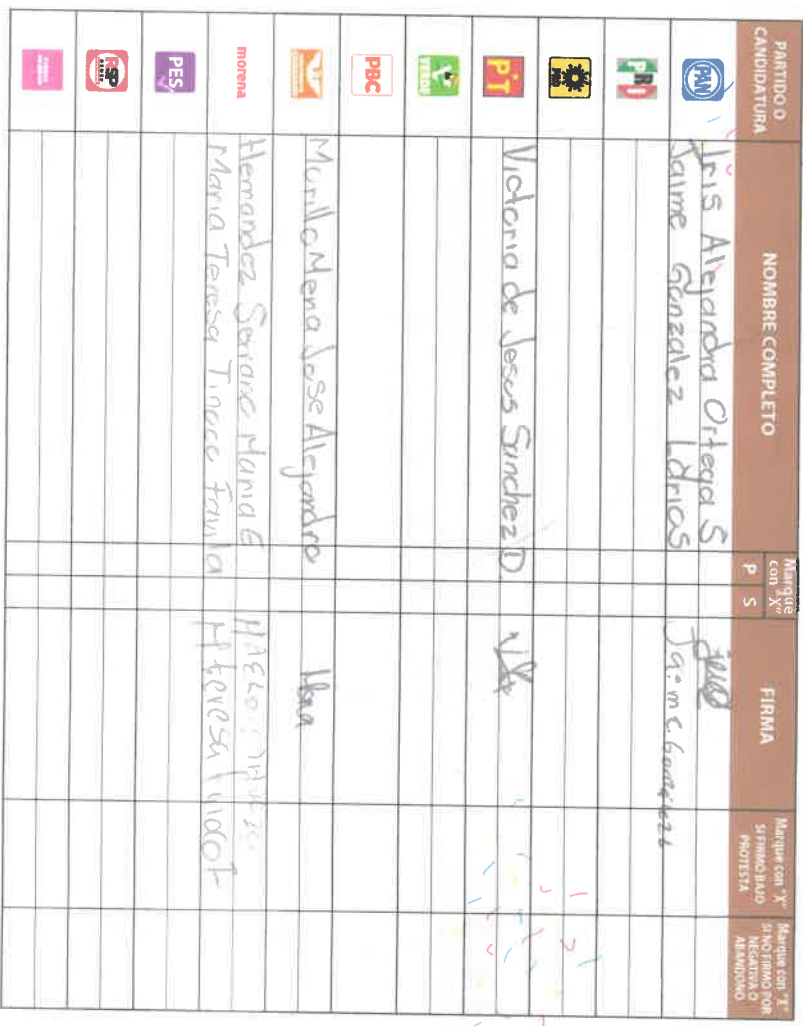 PARTIDO O CANDIDATURA
NOMBRE COMPLETO
Marque con "X"
P S
FIRMA
Marque con "X" SI FIRMÓ BAJO PROTESTA
Marque con "X" SI NO FIRMÓ POR NEGATIVA O ABANDONO
PAN
Iris Alejandra Ortega S
Jaime Gonzalez Larios
PRI
PRD
PT
Victoria de Jesus Sanchez D
VERDE
PBC
Murillo Mena Jose Alejandro
morena
Hernandez Soriano Maria E
Maria Teresa Tinoco Favila
PES
RSP